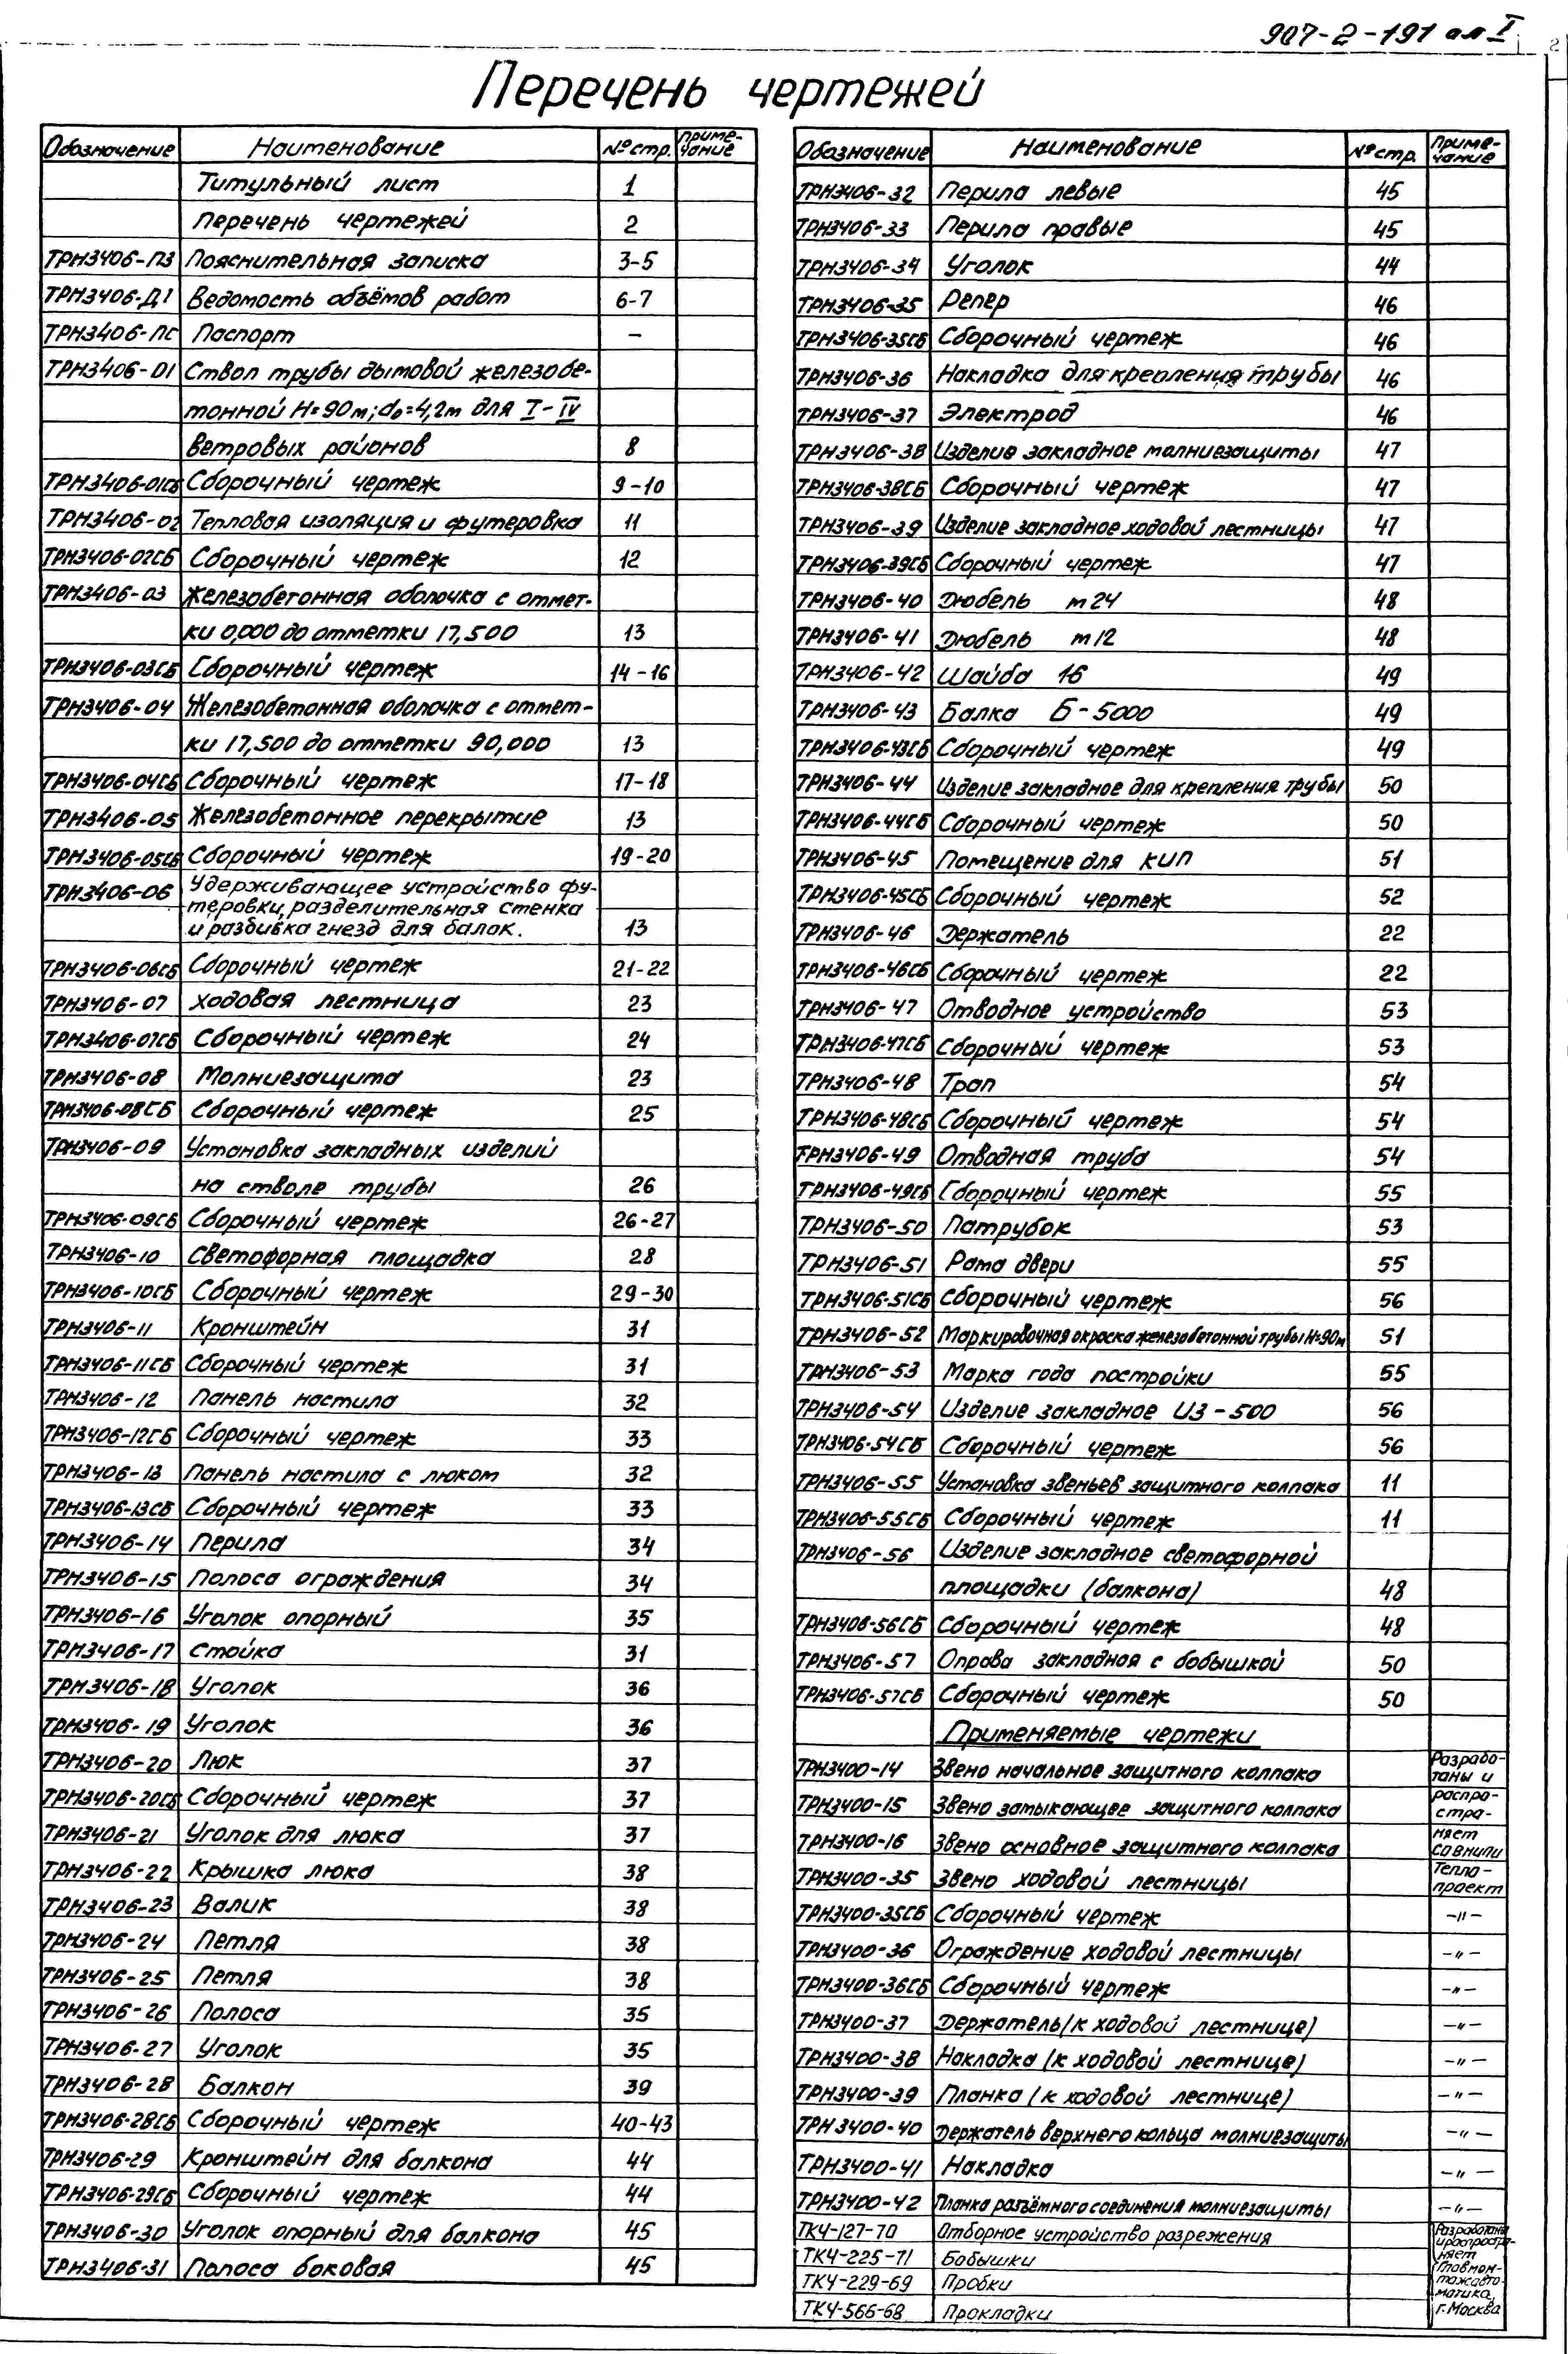 907-2-191 ал I
2
Перечень чертежей
Обозначение Наименование № стр. Приме-
чание
Титульный лист 1
Перечень чертежей 2
ТРН3406-ПЗ Пояснительная записка 3-5
ТРН3406-Д1 Ведомость объёмов работ 6-7
ТРН3406-ПС Паспорт –
ТРН3406-01 Ствол трубы дымовой железобе-
тонной Н=90м; d₀=4,2м для I-IV
ветровых районов 8
ТРН3406-01СБ Сборочный чертеж 9-10
ТРН3406-02 Тепловая изоляция и футеровка 11
ТРН3406-02СБ Сборочный чертеж 12
ТРН3406-03 Железобетонная оболочка с отмет-
ки 0,000 до отметки 17,500 13
ТРН3406-03СБ Сборочный чертеж 14-16
ТРН3406-04 Железобетонная оболочка с отмет-
ки 17,500 до отметки 90,000 13
ТРН3406-04СБ Сборочный чертеж 17-18
ТРН3406-05 Железобетонное перекрытие 13
ТРН3406-05СБ Сборочный чертеж 19-20
ТРН3406-06 Удерживающее устройство фу-
теровки, разделительная стенка
и разбивка гнезд для балок. 13
ТРН3406-06СБ Сборочный чертеж 21-22
ТРН3406-07 Ходовая лестница 23
ТРН3406-07СБ Сборочный чертеж 24
ТРН3406-08 Молниезащита 23
ТРН3406-08СБ Сборочный чертеж 25
ТРН3406-09 Установка закладных изделий
на стволе трубы 26
ТРН3406-09СБ Сборочный чертеж 26-27
ТРН3406-10 Светофорная площадка 28
ТРН3406-10СБ Сборочный чертеж 29-30
ТРН3406-11 Кронштейн 31
ТРН3406-11СБ Сборочный чертеж 31
ТРН3406-12 Панель настила 32
ТРН3406-12СБ Сборочный чертеж 33
ТРН3406-13 Панель настила с люком 32
ТРН3406-13СБ Сборочный чертеж 33
ТРН3406-14 Перила 34
ТРН3406-15 Полоса ограждения 34
ТРН3406-16 Уголок опорный 35
ТРН3406-17 Стойка 31
ТРН3406-18 Уголок 36
ТРН3406-19 Уголок 36
ТРН3406-20 Люк 37
ТРН3406-20СБ Сборочный чертеж 37
ТРН3406-21 Уголок для люка 37
ТРН3406-22 Крышка люка 38
ТРН3406-23 Валик 38
ТРН3406-24 Петля 38
ТРН3406-25 Петля 38
ТРН3406-26 Полоса 35
ТРН3406-27 Уголок 35
ТРН3406-28 Балкон 39
ТРН3406-28СБ Сборочный чертеж 40-43
ТРН3406-29 Кронштейн для балкона 44
ТРН3406-29СБ Сборочный чертеж 44
ТРН3406-30 Уголок опорный для балкона 45
ТРН3406-31 Полоса боковая 45
Обозначение Наименование № стр. Приме-
чание
ТРН3406-32 Перила левые 45
ТРН3406-33 Перила правые 45
ТРН3406-34 Уголок 44
ТРН3406-35 Репер 46
ТРН3406-35СБ Сборочный чертеж 46
ТРН3406-36 Накладка для крепления трубы 46
ТРН3406-37 Электрод 46
ТРН3406-38 Изделие закладное молниезащиты 47
ТРН3406-38СБ Сборочный чертеж 47
ТРН3406-39 Изделие закладное ходовой лестницы 47
ТРН3406-39СБ Сборочный чертеж 47
ТРН3406-40 Дюбель м24 48
ТРН3406-41 Дюбель м12 48
ТРН3406-42 Шайба 16 49
ТРН3406-43 Балка Б-5000 49
ТРН3406-43СБ Сборочный чертеж 49
ТРН3406-44 Изделие закладное для крепления трубы 50
ТРН3406-44СБ Сборочный чертеж 50
ТРН3406-45 Помещение для КИП 51
ТРН3406-45СБ Сборочный чертеж 52
ТРН3406-46 Держатель 22
ТРН3406-46СБ Сборочный чертеж 22
ТРН3406-47 Отводное устройство 53
ТРН3406-47СБ Сборочный чертеж 53
ТРН3406-48 Трап 54
ТРН3406-48СБ Сборочный чертеж 54
ТРН3406-49 Отводная труба 54
ТРН3406-49СБ Сборочный чертеж 55
ТРН3406-50 Патрубок 53
ТРН3406-51 Рама двери 55
ТРН3406-51СБ Сборочный чертеж 56
ТРН3406-52 Маркировочная окраска железобетонной трубы Н=90м 51
ТРН3406-53 Марка года постройки 55
ТРН3406-54 Изделие закладное ИЗ-500 56
ТРН3406-54СБ Сборочный чертеж 56
ТРН3406-55 Установка звеньев защитного колпака 11
ТРН3406-55СБ Сборочный чертеж 11
ТРН3406-56 Изделие закладное светофорной
площадки (балкона) 48
ТРН3406-56СБ Сборочный чертеж 48
ТРН3406-57 Оправа закладная с бобышкой 50
ТРН3406-57СБ Сборочный чертеж 50
Применяемые чертежи
ТРН3400-14 Звено начальное защитного колпака Разрабо-
таны и
ТРН3400-15 Звено замыкающее защитного колпака распро-
стра-
ТРН3400-16 Звено основное защитного колпака няет
СО ВНИПИ
ТРН3400-35 Звено ходовой лестницы Тепло-
проект
ТРН3400-35СБ Сборочный чертеж –"–
ТРН3400-36 Ограждение ходовой лестницы –"–
ТРН3400-36СБ Сборочный чертеж –"–
ТРН3400-37 Держатель (к ходовой лестнице) –"–
ТРН3400-38 Накладка (к ходовой лестнице) –"–
ТРН3400-39 Планка (к ходовой лестнице) –"–
ТРН3400-40 Держатель верхнего кольца молниезащиты –"–
ТРН3400-41 Накладка –"–
ТРН3400-42 Планка разъёмного соединения молниезащиты –"–
ТК4-127-70 Отборное устройство разрежения Разработаны
и распростра-
няет
ТК4-225-71 Бобышки Главмон-
ТК4-229-69 Пробки тажавто-
матика,
ТК4-566-68 Прокладки г. Москва